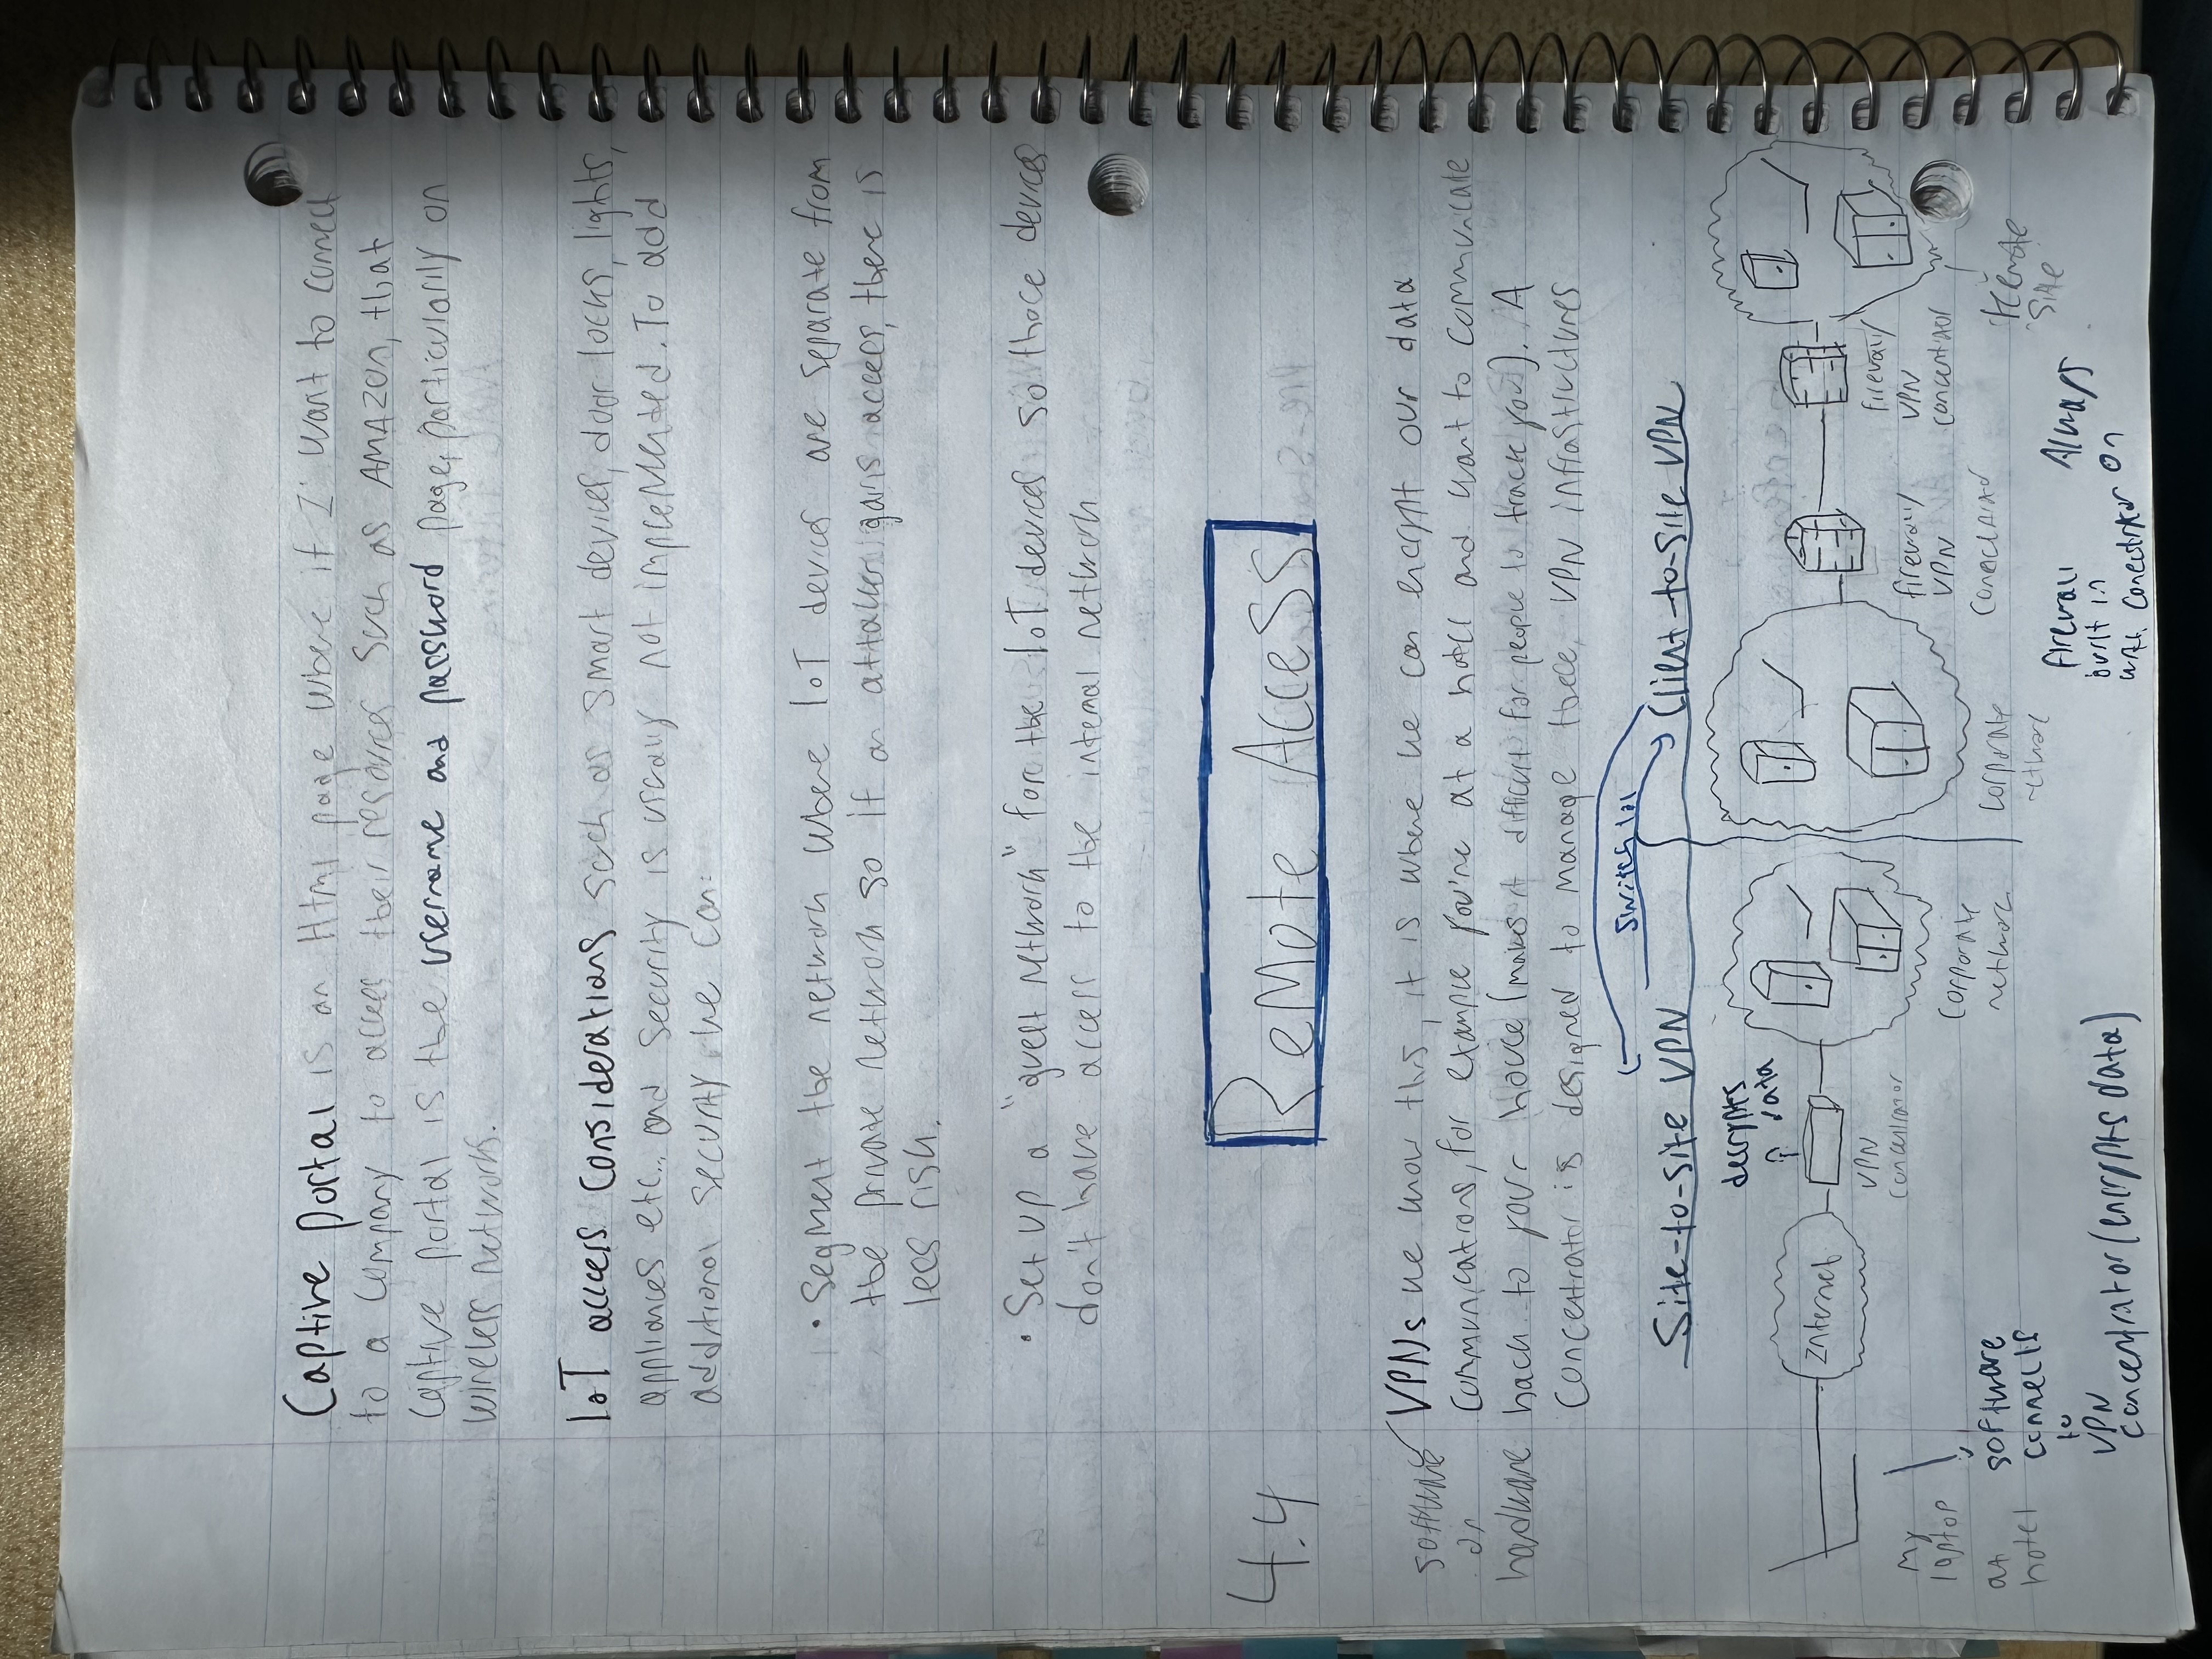 Captive portal is an Html page where if I want to connect
to a company to access their resources such as AMAZON, that
captive portal is the username and password page, particularily on
wireless networks.
IoT access considerations such as smart devices, door locks, lights,
appliances etc... and security is usually not implemented. To add
additional security we can:
• Segment the network where IoT devices are separate from
the private network so if an attacker gains access, there is
less risk.
• Set up a "guest network" for the IoT devices so those devices
don't have access to the internal network
4.4
Remote Access
software
or
hardware
VPNs we know this, it is where we can encrypt our data
communications, for example you're at a hotel and want to communicate
back to your house (makes it difficult for people to track you). A
concentrator is designed to manage these VPN infrastructures
switch
Site-to-site VPN
Client-to-site VPN
decrypts
data
Internet
VPN
concentrator
corporate
network
my
laptop
at
hotel
software
connects
to
VPN
concentrator (encrypts data)
corporate
network
firewall/
VPN
firewall/
VPN
concentrator
remote
site
firewall
built in
Always
on